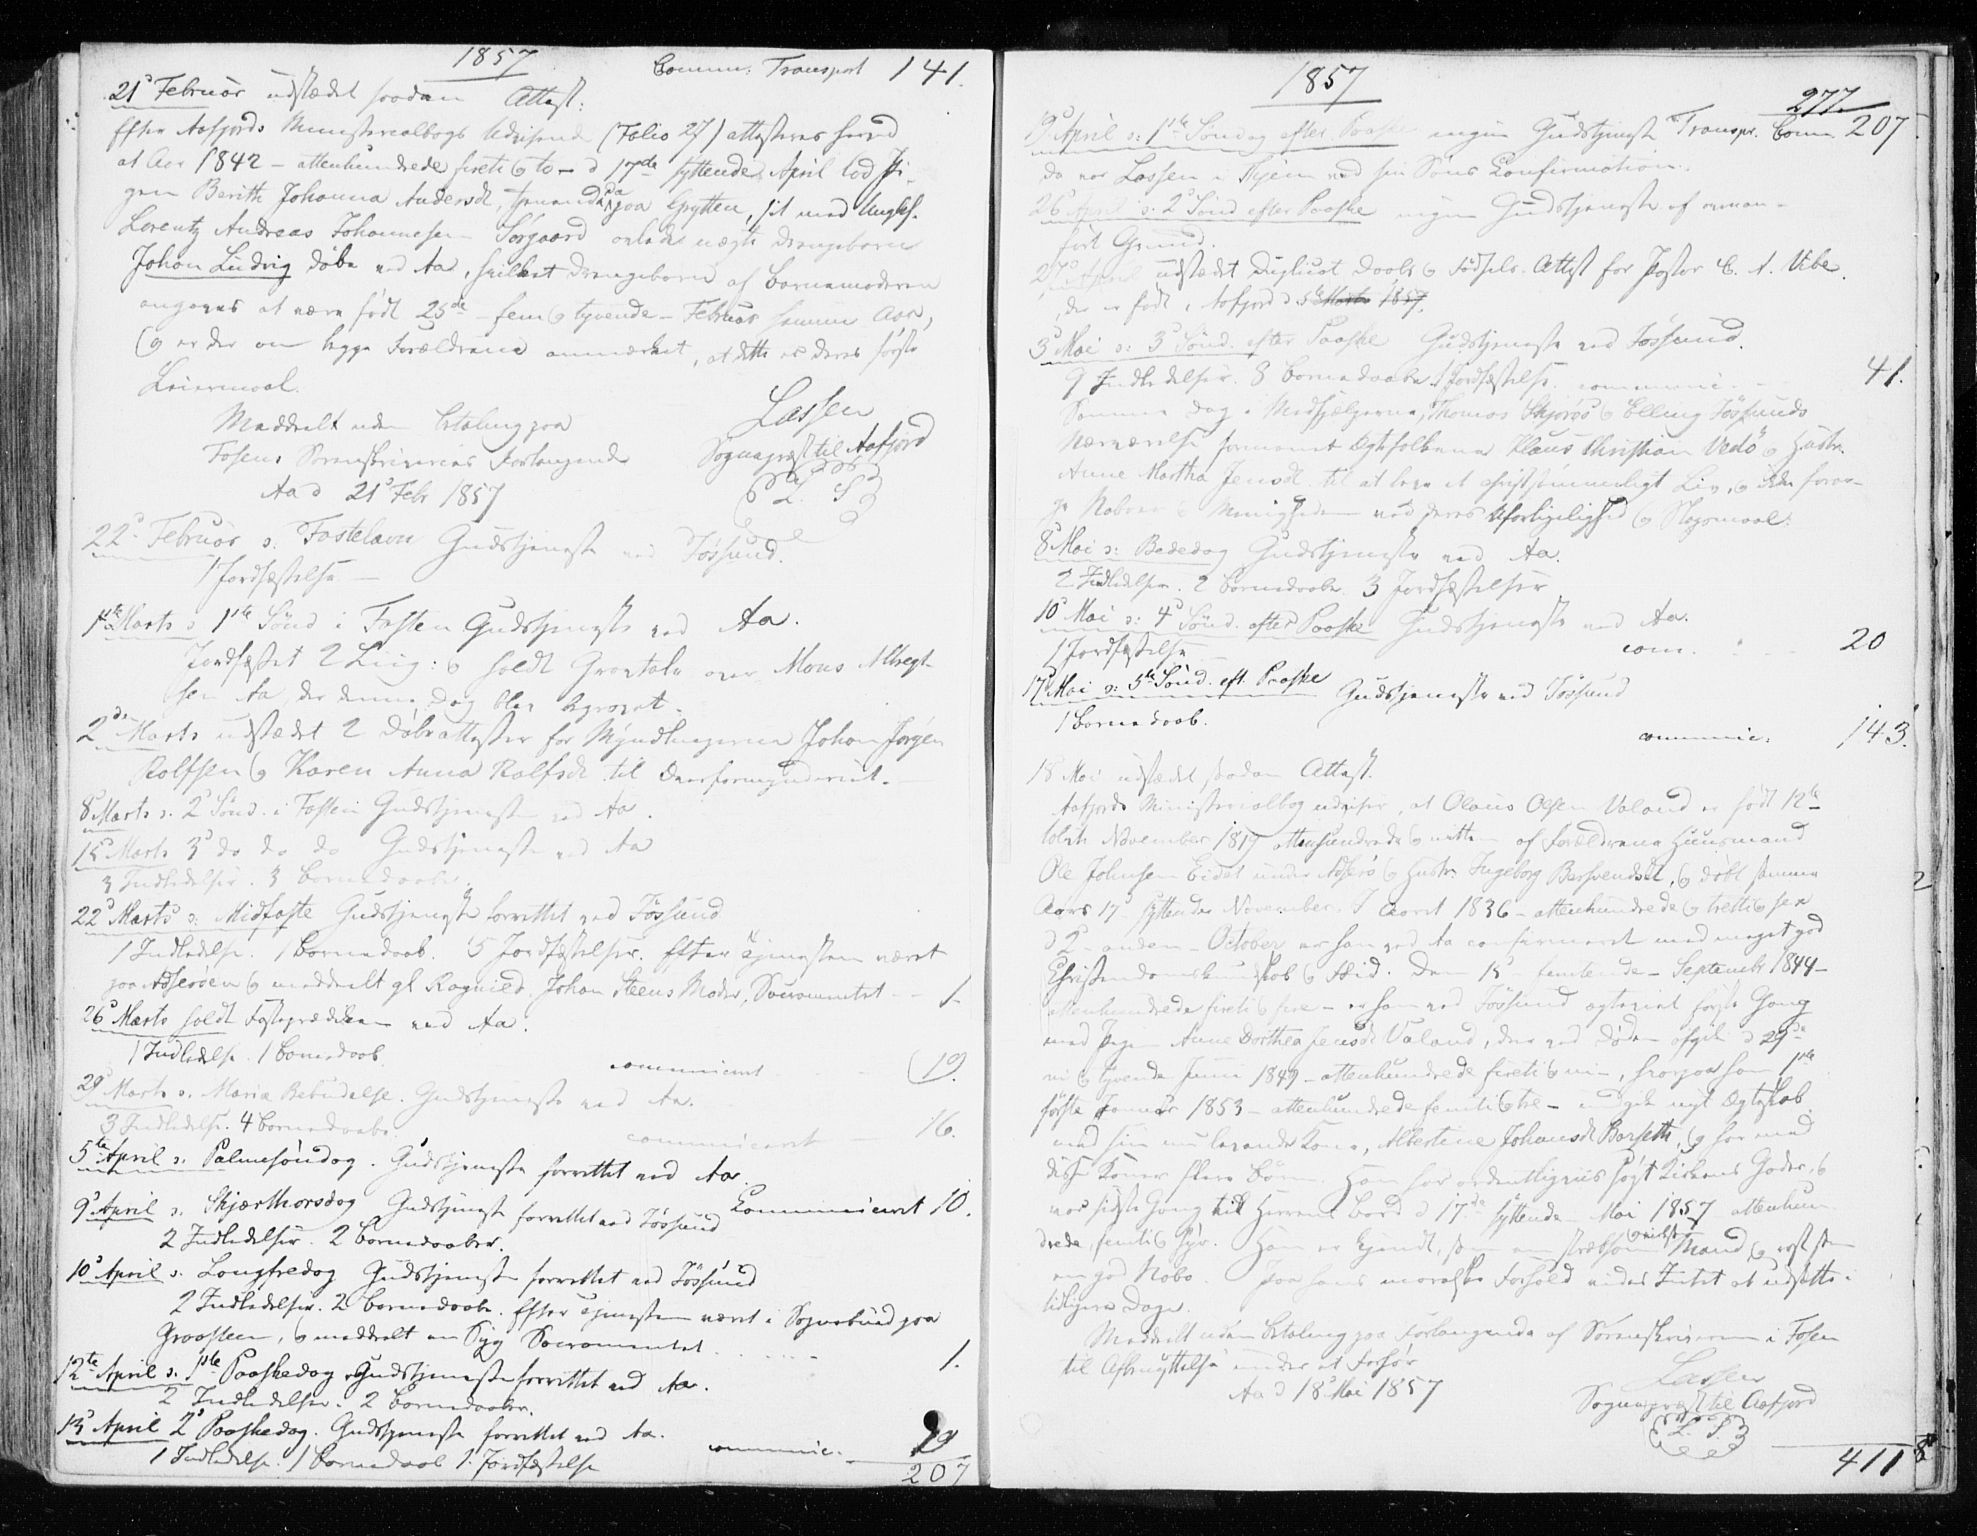 1857
Commu: Transport 141.
21d Februar udstædet saadan Attest:
Efter Aafjords Ministerialbogs Udvisende (Folio 27) attesteres herved
at Aar 1842 - attenhundrede fireti & to - d 17de syttende April lod Pi-
gen Berith Johanna Andersdt, tjenende da paa Grytten, sit med Ungkf.
Lorentz Andreas Johannesen Sørgaard avlede uægte Drengebarn
Johan Ludvig døbe ved Aa, hvilket Drengebarn af Barnemoderen
angaves at være født 25de - fem & tyvende - Februar samme Aar,
& er der om begge Forældrene anmærket, at dette er deres første
Leiermaal.
Meddelt uden betaling paa
Fosens Sorenskriveries Forlangende
Aa d 21d Febr 1857
Lassen
Sognepræst til Aafjord
(L. S.)
22d Februar s: Fastelavn Gudstjeneste ved Jøssund.
1 Jordfæstelse
1ste Marts s. 1ste Sönd i Fasten Gudstjeneste ved Aa.
Jordfæstet 2 Liig: & holdt Gravtale over Mons Albregt-
sen Aa, der denne Dag blev begravet.
2de Marts udstædet 2 Døbeattester for Myndlingerne Johan Jørgen
Rolfsen & Karen Anna Rolfsdt til Overformynderiet.
8d Marts s. 2d Sönd. i Fasten Gudstjeneste ved Aa.
15d Marts 3d do do do Gudstjeneste ved Aa
3 Indledelser. 3 Barnedaabe.
22d Marts s: Midfaste Gudstjeneste forrettet ved Jøssund
1 Indledelse. 1 Barnedaab. 5 Jordfæstelser. Efter Tjenesten været
paa Adserøen & meddeelt gl Ragnild, Johan Steens Moder, Sacramentet - - 1.
26d Marts holdt Fasteprædiken ved Aa.
1 Indledelse. 1 Barnedaab.
communiceret - - - 19.
29d Marts s. Mariæ Bebudelse. Gudstjeneste ved Aa.
3 Indledelse. 4 Barnedaabe.
communiceret - 16.
5te April s. Palmesöndag. Gudstjeneste forrettet ved Aa.
9d April s. Skjærthorsdag Gudstjeneste forrettet ved Jøssund Communiceret 10.
2 Indledelser. 2 Barnedaaber.
10d April s. Langfredag Gudstjeneste forrettet ved Jøssund
2 Indledelser. 2 Barnedaabe. Efter Tjenesten været i Sognebud paa
Graasteen, & meddeelt en Syg Sacramentet. - - - 1.
12te April s. 1ste Paaskedag Gudstjeneste forrettet ved Aa.
2 Indledelser. 2 Barnedaaber.
13d April 2d Paaskedag. Gudstjeneste forrettet ved Aa.
communic. 19
1 Indledelse. 1 Barnedaab 1 Jordfæstelse
207
1857
277.
19d April s: 1ste Söndag efter Paaske ingen Gudstjeneste Transpr. Comm 207
da var Lassen i Thjem ved sin Søns Confirmation.
26 April s: 2d Sönd efter Paaske ingen Gudstjeneste af ovenan-
ført Grund.
27d April udstædet Duplicat Daabs & Fødsels-Attest for Pastor C. A. Vibe,
der er født i Aafjord d 5te Marts 1857.
3d Mai s: 3d Sönd. efter Paaske Gudstjeneste ved Jøssund.
9 Indledelser. 8 Barnedaabe. 1 Jordfæstelse. communic. - 41.
Samme Dag i Medhjælperne, Thomas Skjørøs & Elling Jøssunds
Nærværelse formanet Egtefolkene Klaus Christian Vedø & Hustr.
Anne Martha Jensdt. til at leve et christsömmeligt Liv, & ikke forar-
ge Naboer & Menigheden ved deres Uforligelighed & Slagsmaal.
8 Mai s: Bededag Gudstjeneste ved Aa.
2 Indledelser. 2 Barnedaabe. 3 Jordfæstelser
10d Mai s: 4d Sönd. efter Paaske Gudstjeneste ved Aa.
1 Jordfæstelse com. - - 20
17d Mai s: 5te Sönd. eft. Paaske Gudstjeneste ved Jøssund
1 Barnedaab.
communic: 143.
18 Mai udstædet saadan Attest.
Aafjords Ministerialbog udviser, at Olaus Olsen Valand er født 12te
tolvte November 1819 attenhundrede & nitten af Forældrene Huusmand
Ole Johnsen Eidet under Adserø & Hustr. Ingeborg Bersvendsdt, & døbt samme
Aars 17d syttende November. I Aaret 1836 - attenhundrede & tretti & sex
d 2 - anden - October er han ved Aa confirmeret med meget god
Christendomskundskab & Flid. Den 15d femtende - Septembr 1844 -
attenhundrede fireti & fire - er han ved Jøssund egteviet første Gang
med Pigen Anne Dorthea Jensdt Valand, der ved Døden afgik d 29de
ni & tyvende Juni 1849 - attenhundrede fireti & ni -, hvorpaa han 1ste
første Januar 1853 - attenhundrede femti & tre - indgik nyt Egteskab
med sin nu levende Kone, Albertine Johansdt Borseth, & har med
disse Koner flere Börn. Han har ordentligviis søgt Kirkens Goder, &
var sidste Gang til Herrens Bord d 17de syttende - Mai 1857 attenhun-
drede, femti & syv. Han er kjendt, som en stræbsom & virksom Mand, & rost som
en god Nabo. Paa hans moralske Forhold vides Intet at udsætte i
tidligere Dage.
Meddelt uden betaling paa Forlangende af Sorenskriveren i Fosen
til Afbenyttelse under et Forhør
Aa d 18d Mai 1857
Lassen
Sognepræst til Aafjord
(L. S.)
411